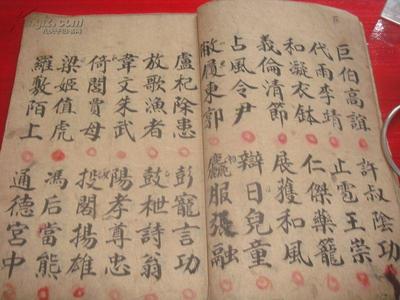 巨伯高誼 許叔陰功
代雨李靖 止雹王崇
和凝衣鉢 仁傑藥籠
義倫清節 展獲和風
占風令尹 辯日兒童
敝履東郭 麤服張融
盧杞除患 彭寵言功
放歌漁者 鼓枻詩翁
韋文朱武 陽孝尊忠
倚閭賈母 投閣揚雄
梁姬值虎 馮后當熊
羅敷陌上 通德宮中